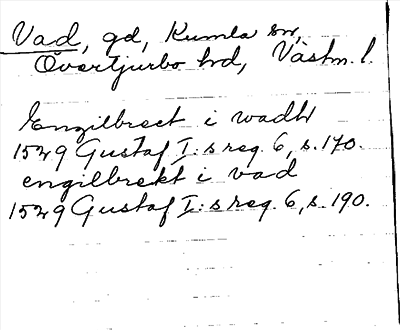 Vad, gd, Kumla sn,
Övertjurbo hd, Västm. l.
Engilbrect i wadh
1529 Gustaf I:s reg. 6, s. 170.
engilbrekt i vad
1529 Gustaf I:s reg. 6, s. 190.